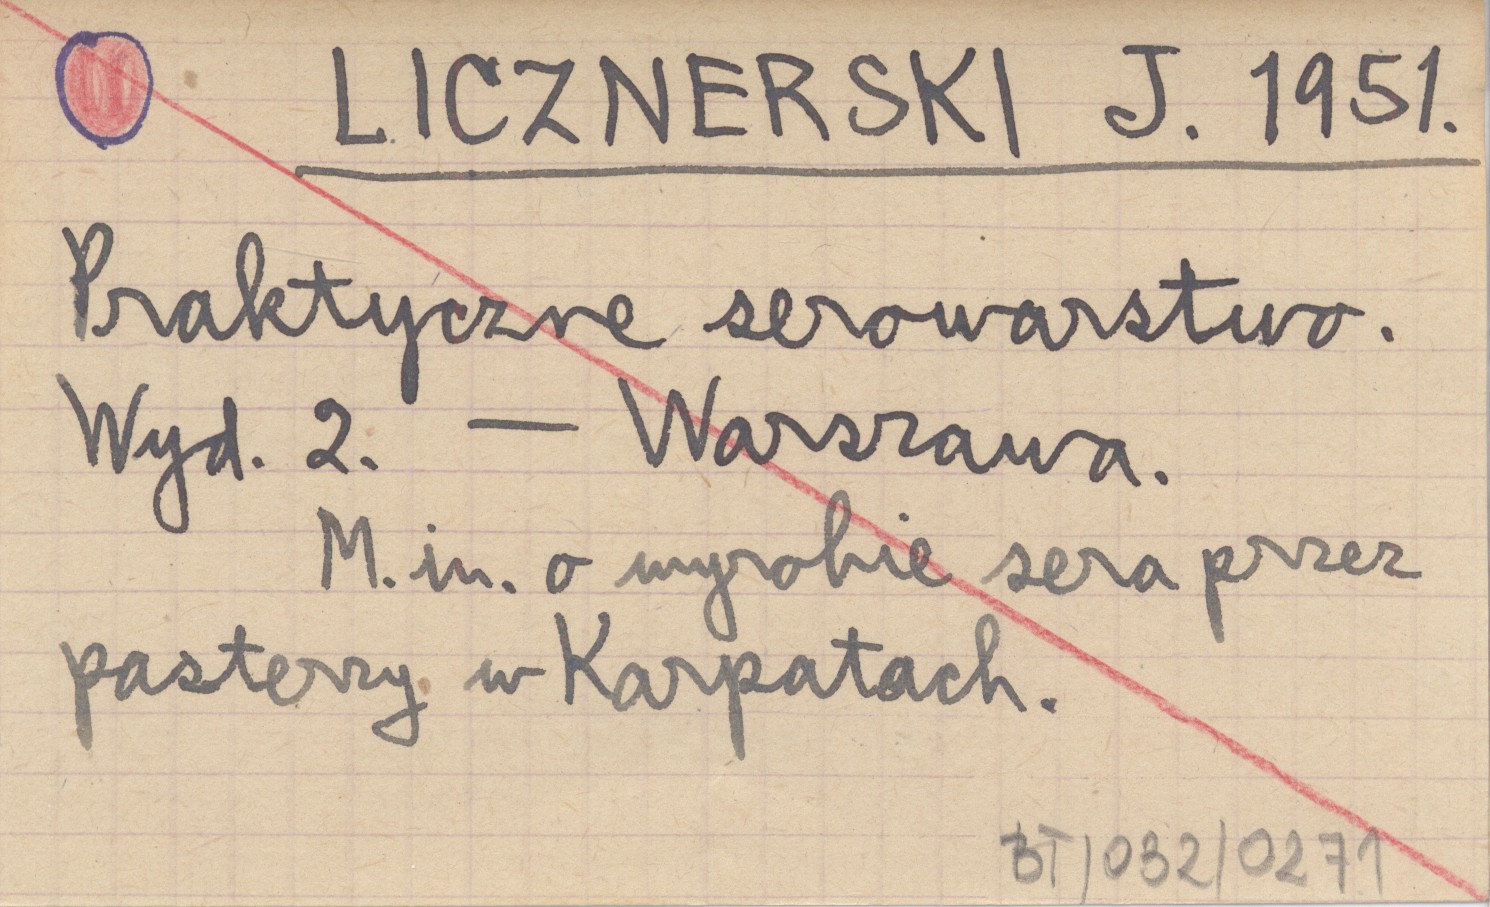 LICZNERSKI J. 1951.
Praktyczne serowarstwo.
Wyd. 2. — Warszawa.
M. in. o wyrobie sera przez
pasterzy w Karpatach.
BT/032/0271